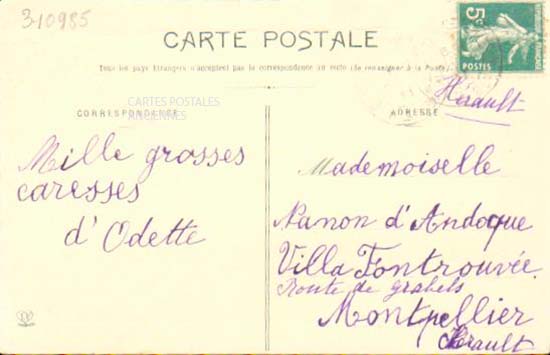 3-10985
5c
POSTES
CARTE POSTALE
Tous les pays étrangers n'acceptent pas la correspondance au recto (Se renseigner à la Poste)
Hérault
CORRESPONDANCE
CARTES POSTALES
ANCIENNES
ADRESSE
Mille grosses
caresses
d'Odette
Mademoiselle
Nanon d'Andoque
Villa Fontrouvée
Route de grabels
Montpellier
Hérault